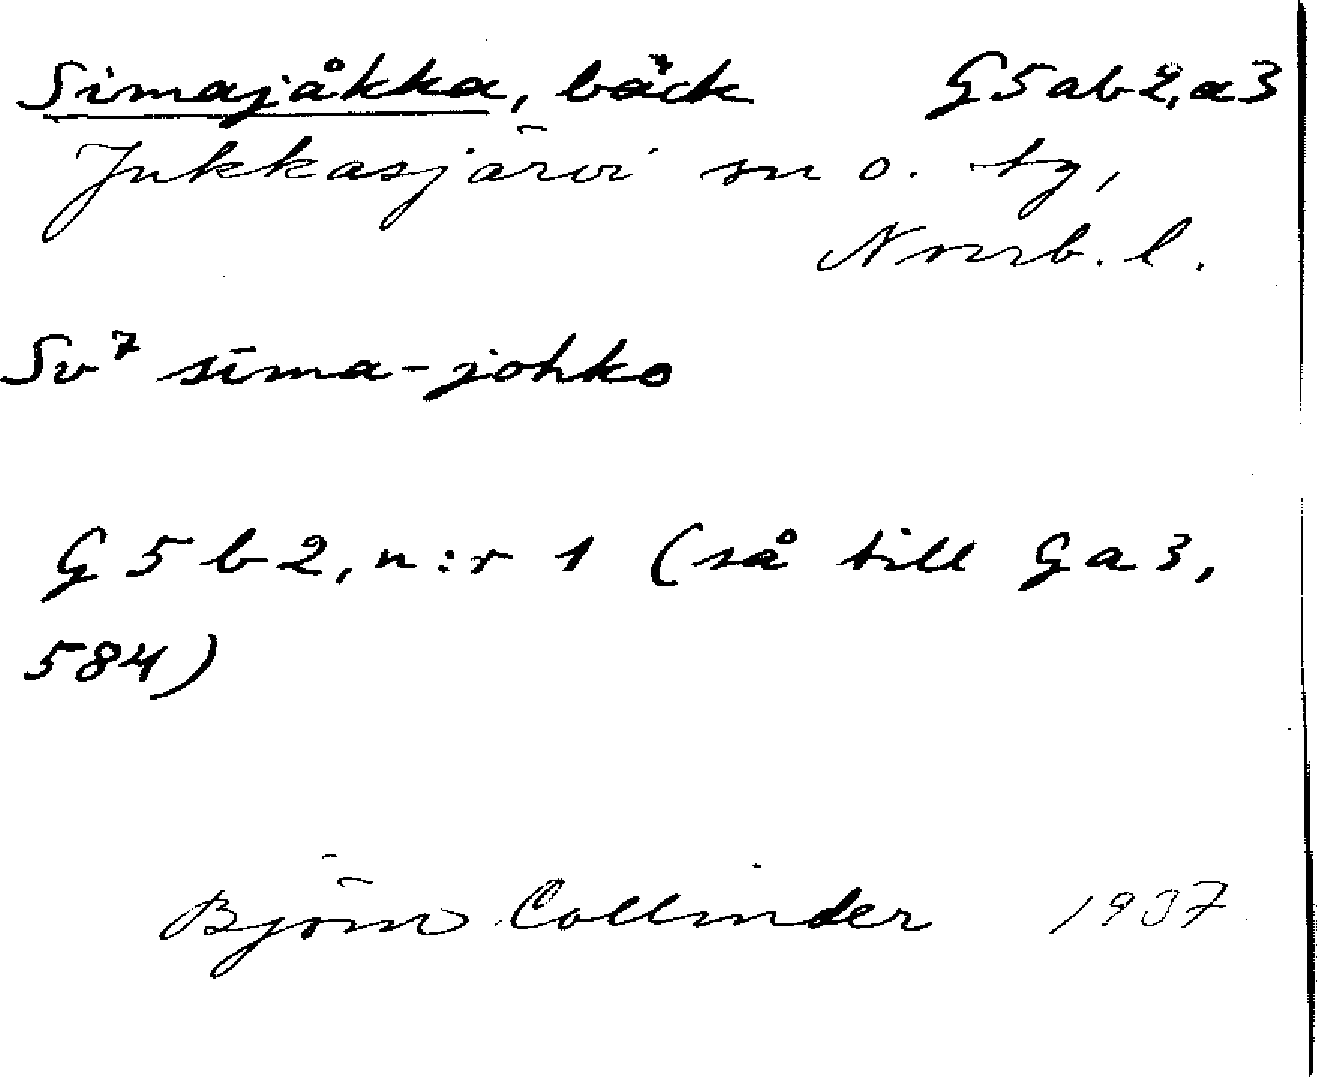 Simajåkka, bäck G5ab2,a3
Jukkasjärvi sn o. tg,
Norrb. l.
Sv⁷ sīma-johko
G5b2, n:r 1 (så till Ga3,
584)
Björn Collinder 1937